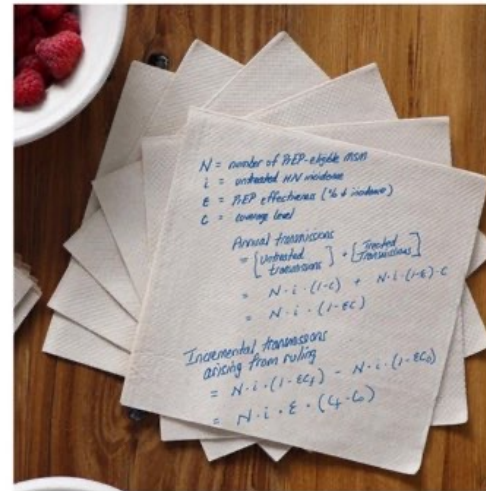 N = number of PrEP-eligible MSM
i = untreated HIV incidence
ε = PrEP effectiveness (% ↓ incidence)
c = coverage level
Annual transmissions
= [untreated transmissions] + [Treated transmissions]
= N·i·(1-c) + N·i·(1-ε)·c
= N·i·(1-εc)
Incremental transmissions
arising from ruling
= N·i·(1-εC₁) - N·i·(1-εC₀)
= N·i·ε·(C₁-C₀)